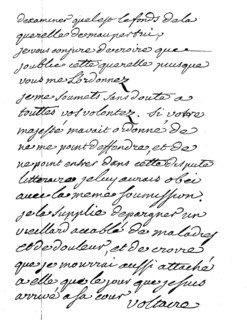 dexaminer quel est le fonds de la
querelle de maupertui,
je vous conjure de croire que
joublie cette querelle puisque
vous me lordonnez
je me soumets sans doute a
touttes vos volontez. si votre
majesté mavait ordonné de
ne me point deffendre, et de
ne point entrer dans cette dispute
litteraire je luy aurais obei
avec la meme soumission.
je la supplie depargner un
vieillard accablé de maladies
et de douleur, et de croire
que je mourrai aussi attaché
a elle que le jour que je suis
arrivé a sa cour
voltaire